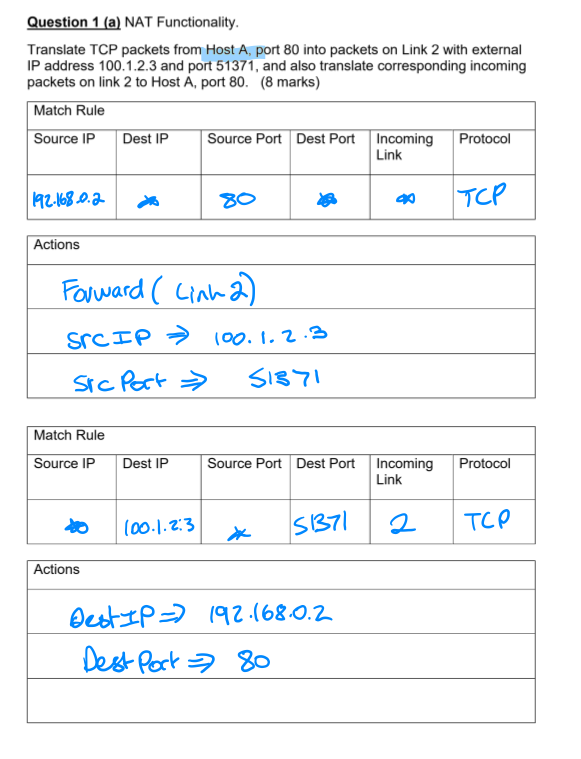 Question 1 (a) NAT Functionality.
Translate TCP packets from Host A, port 80 into packets on Link 2 with external
IP address 100.1.2.3 and port 51371, and also translate corresponding incoming
packets on link 2 to Host A, port 80. (8 marks)
Match Rule
Source IP Dest IP Source Port Dest Port Incoming Link Protocol
192.168.0.2 * 80 * * TCP
Actions
Forward ( Link 2)
Src IP ⇒ 100.1.2.3
Src Port ⇒ 51371
Match Rule
Source IP Dest IP Source Port Dest Port Incoming Link Protocol
* 100.1.2.3 * 51371 2 TCP
Actions
Dest IP ⇒ 192.168.0.2
Dest Port ⇒ 80